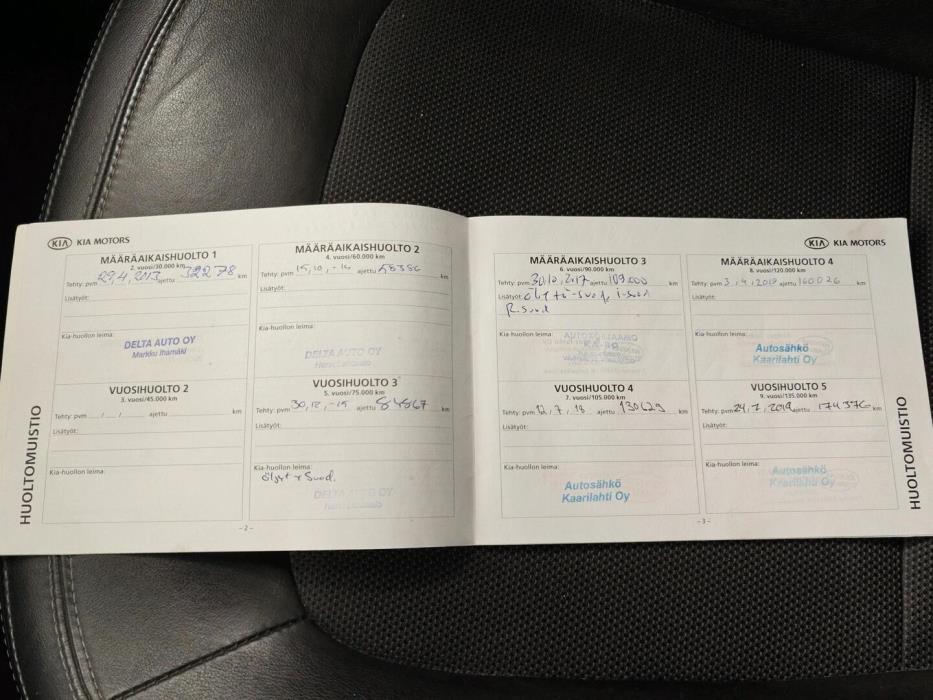 KIA KIA MOTORS
MÄÄRÄAIKAISHUOLTO 1
2. vuosi/30.000 km
Tehty: pvm 29,4,2013 ajettu 32278 km
Lisätyöt:
Kia-huollon leima:
DELTA AUTO OY
Markku Ihamäki
VUOSIHUOLTO 2
3. vuosi/45.000 km
Tehty: pvm / / ajettu km
Lisätyöt:
Kia-huollon leima:
MÄÄRÄAIKAISHUOLTO 2
4. vuosi/60.000 km
Tehty: pvm 15,10,-14 ajettu 58386 km
Lisätyöt:
Kia-huollon leima:
DELTA AUTO OY
VUOSIHUOLTO 3
5. vuosi/75.000 km
Tehty: pvm 30,12,-15 ajettu 84867 km
Lisätyöt:
Kia-huollon leima:
öljyt + Suod.
DELTA AUTO OY
HUOLTOMUISTIO
- 2 -
KIA KIA MOTORS
MÄÄRÄAIKAISHUOLTO 3
6. vuosi/90.000 km
Tehty: pvm 30,10,2017 ajettu 109000 km
Lisätyöt:
R.Suod
Kia-huollon leima:
VUOSIHUOLTO 4
7. vuosi/105.000 km
Tehty: pvm 12,7,18 ajettu 130629 km
Lisätyöt:
Kia-huollon leima:
Autosähkö
Kaarilahti Oy
MÄÄRÄAIKAISHUOLTO 4
8. vuosi/120.000 km
Tehty: pvm 3,4,2019 ajettu 160026 km
Lisätyöt:
Kia-huollon leima:
Autosähkö
Kaarilahti Oy
VUOSIHUOLTO 5
9. vuosi/135.000 km
Tehty: pvm 24,7,2019 ajettu 174376 km
Lisätyöt:
Kia-huollon leima:
Autosähkö
Kaarilahti Oy
HUOLTOMUISTIO
- 3 -